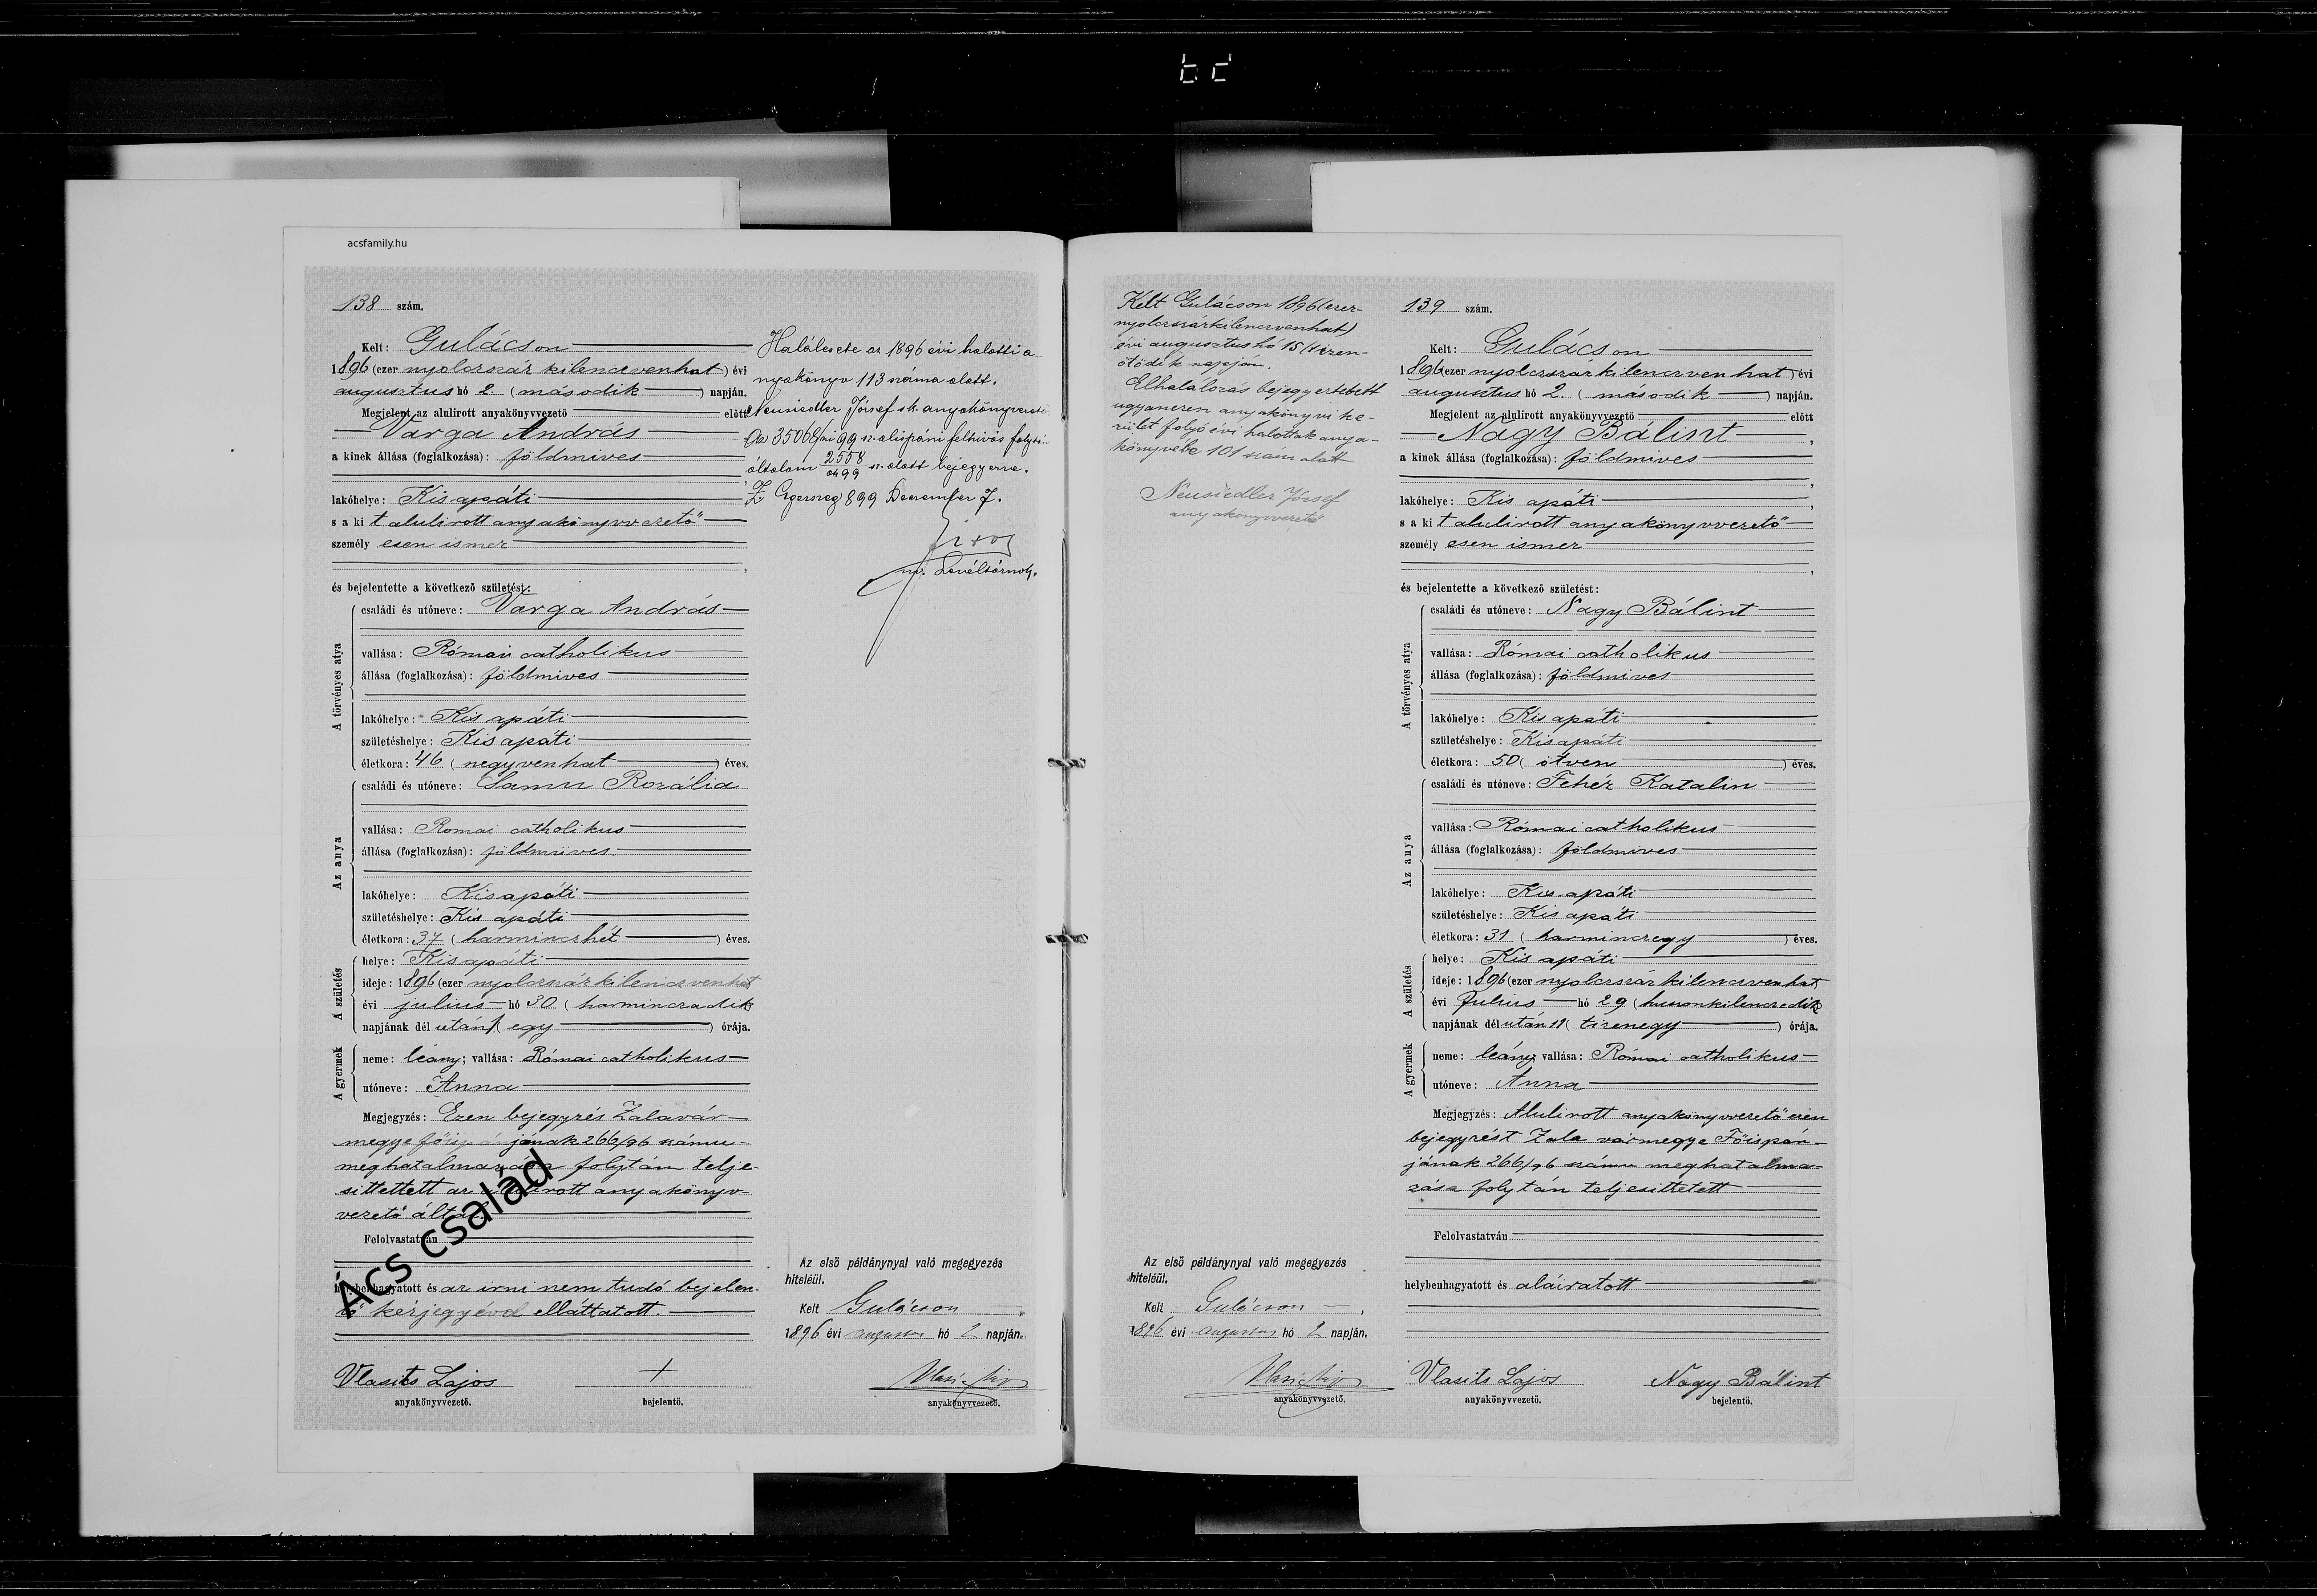 acsfamily.hu
138 szám.
Kelt: Gulácson
1896 (ezer nyolczszáz kilenczvenhat) évi
augusztus hó 2 (második) napján.
Megjelent az alulirott anyakönyvvezető előtt
Varga András
a kinek állása (foglalkozása): földmives
lakóhelye: Kis apáti
s a kit alulirott anyakönyvvezető
személyesen ismer
és bejelentette a következő születést:
A törvényes atya
családi és utóneve: Varga András
vallása: Római catholikus
állása (foglalkozása): földmives
lakóhelye: Kis apáti
születéshelye: Kis apáti
életkora: 46 (negyvenhat) éves.
Az anya
családi és utóneve: Samu Rozália
vallása: Romai catholikus
állása (foglalkozása): földmüves
lakóhelye: Kisapáti
születéshelye: Kis apáti
életkora: 37 (harminczhét) éves.
A születés
helye: Kisapáti
ideje: 1896 (ezer nyolczszáz kilenczvenhat
évi julius hó 30 (harminczadik
napjának dél után 1 (egy) órája.
A gyermek
neme: leány; vallása: Római catholikus
utóneve: Anna
Megjegyzés: Ezen bejegyzés Zalavár-
megye főispánjának 266/96 számu
meghatalmazása folytán telje-
sittettett az alulirott anyakönyv-
vezető által.
Felolvastatván
helybenhagyatott és az irni nem tudó bejelen-
tő kézjegyével elláttatott.
Vlasits Lajos +
anyakönyvvezető. bejelentő.
Ács család
Halálesete az 1896 évi halotti a-
nyakönyv 113 száma alatt.
Neusiedler József s.k. anyakönyvvezető
Az 35068/ni 99 sz. alispáni felhivás folytán
általam 2558/99 sz. alatt bejegyezve.
Z Egerszeg 899 December 7.
m. Levéltárnok.
Az első példánynyal való megegyezés
hiteléül.
Kelt Gulácson
1896 évi augusztus hó 2 napján.
anyakönyvvezető.
Kelt Gulácson 1896 (ezer-
nyolczszázkilenczvenhat)
évi augusztus hó 15 (tizen-
ötödik napján.
Elhalálozás bejegyeztetett
ugyanezen anyakönyvi ke-
rület folyó évi halottak anya-
könyvébe 101 szám alatt
Neusiedler József
anyakönyvvezető
Az első példánynyal való megegyezés
hiteléül.
Kelt Gulácson
1896 évi augusztus hó 2 napján.
anyakönyvvezető.
139 szám.
Kelt: Gulácson
1896 (ezer nyolczszáz kilenczvenhat) évi
augusztus hó 2. (második) napján.
Megjelent az alulirott anyakönyvvezető előtt
Nagy Bálint,
a kinek állása (foglalkozása): földmives
lakóhelye: Kis apáti
s a kit alulirott anyakönyvvezető
személyesen ismer
és bejelentette a következő születést:
A törvényes atya
családi és utóneve: Nagy Bálint
vallása: Római catholikus
állása (foglalkozása): földmives
lakóhelye: Kis apáti
születéshelye: Kis apáti
életkora: 50 (ötven) éves.
Az anya
családi és utóneve: Fehér Katalin
vallása: Római catholikus
állása (foglalkozása): földmives
lakóhelye: Kis apáti
születéshelye: Kis apáti
életkora: 31 (harminczegy) éves.
A születés
helye: Kis apáti
ideje: 1896 (ezer nyolczszáz kilenczvenhat
évi Julius hó 29 (huszonkilenczedik
napjának dél után 11 (tizenegy) órája.
A gyermek
neme: leány; vallása: Római catholikus
utóneve: Anna
Megjegyzés: Alulirott anyakönyvvezető ezen
bejegyzést Zala vármegye Főispán-
jának 266/96 számu meghatalma-
zása folytán teljesittetett
Felolvastatván
helybenhagyatott és aláiratott
Vlasits Lajos Nagy Bálint
anyakönyvvezető. bejelentő.